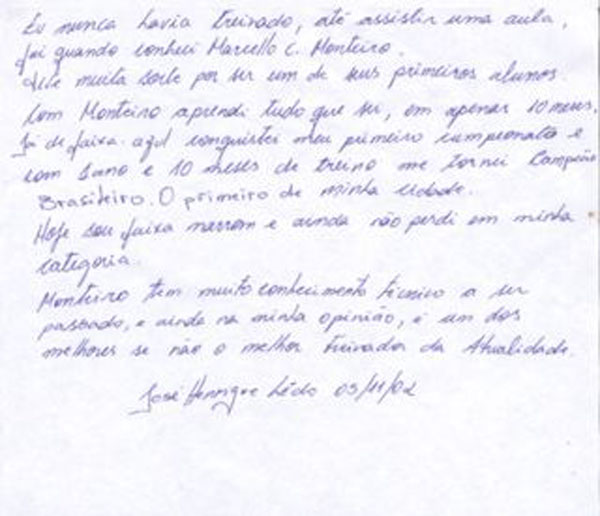 Eu nunca havia treinado, até assistir uma aula,
foi quando conheci Marcello C. Monteiro.
Tive muita sorte por ser um de seus primeiros alunos.
Com Monteiro aprendi tudo que sei, em apenas 10 meses.
Já de faixa azul conquistei meu primeiro campeonato e
com 1 ano e 10 meses de treino me tornei Campeão
Brasileiro. O primeiro de minha cidade.
Hoje sou faixa marrom e ainda não perdi em minha
categoria.
Monteiro tem muito conhecimento técnico a ser
passado, e ainda na minha opinião, é um dos
melhores se não o melhor treinador da Atualidade.
José Henrique Lêdo 03/11/02